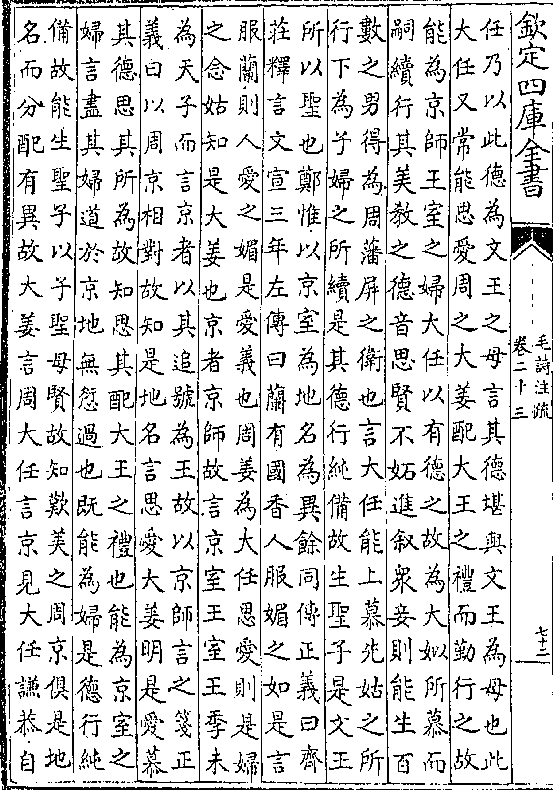 欽定四庫全書
毛詩注疏
卷二十三
七十二
任乃以此德為文王之母言其德堪與文王為母也此
大任又常能思愛周之大姜配大王之禮而勤行之故
能為京師王室之婦大任以有德之故為大姒所慕而
嗣續行其美教之德音思賢不妬進叙衆妾則能生百
數之男得為周藩屏之衛也言大任能上慕先姑之所
行下為子婦之所續是其德行純備故生聖子是文王
所以聖也鄭惟以京室為地名為異餘同傳正義曰齊
莊釋言文宣三年左傳曰蘭有國香人服媚之如是言
服蘭則人愛之媚是愛義也周姜為大任思愛則是婦
之念姑知是大姜也京者京師故言京室王室王季未
為天子而言京者以其追號為王故以京師言之箋正
義曰以周京相對故知是地名言思愛大姜明是愛慕
其德思其所為故知思其配大王之禮也能為京室之
婦言盡其婦道於京地無愆過也既能為婦是德行純
備故能生聖子以子聖母賢故知歎美之周京俱是地
名而分配有異故大姜言周大任言京見大任謙恭自